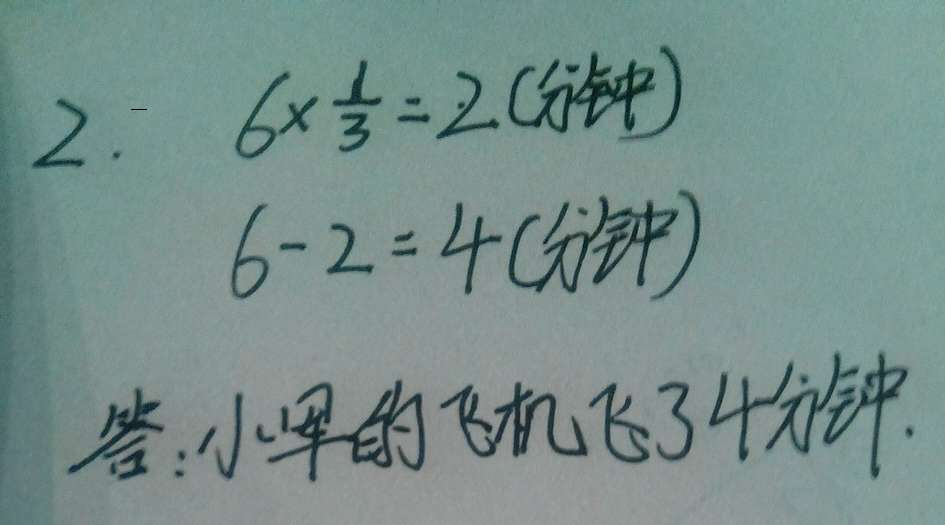 2. 6×1/3=2(分钟)
6-2=4(分钟)
答:小军的飞机飞了4分钟.